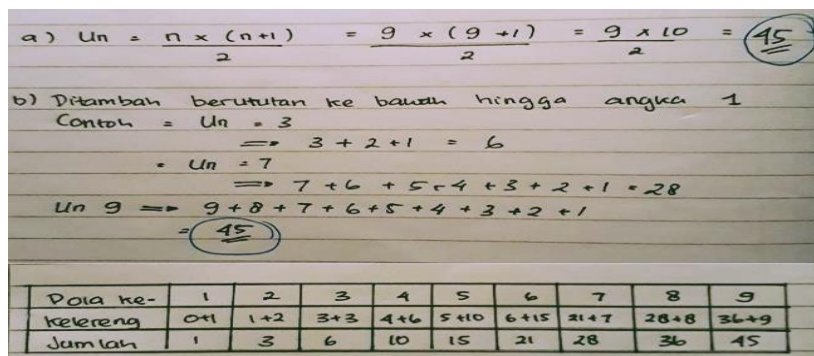 a) Un = n x (n+1) / 2 = 9 x (9+1) / 2 = 9 x 10 / 2 = 45
b) Ditambah berututan ke bawah hingga angka 1
Contoh = Un = 3
⇒ 3 + 2 + 1 = 6
• Un = 7
⇒ 7 + 6 + 5 + 4 + 3 + 2 + 1 = 28
Un 9 ⇒ 9 + 8 + 7 + 6 + 5 + 4 + 3 + 2 + 1
= 45
Pola ke- 1 2 3 4 5 6 7 8 9
Kelereng 0+1 1+2 3+3 4+6 5+10 6+15 21+7 28+8 36+9
Jumlah 1 3 6 10 15 21 28 36 45